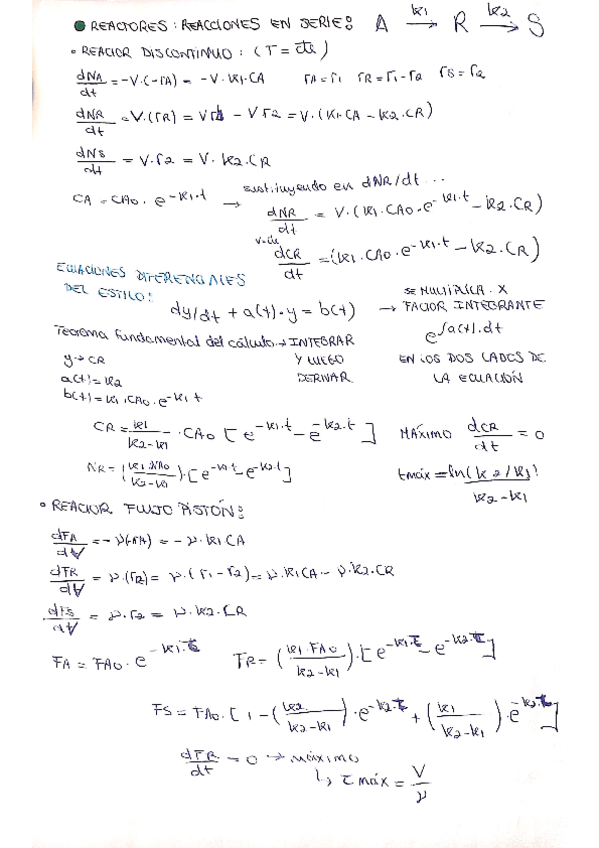 ● REACTORES: REACCIONES EN SERIE: A —k1→ R —k2→ S
• REACTOR DISCONTINUO: (T = cte)
dNA/dt = -V·(-rA) = -V·k1·CA rA = r1 rR = r1-r2 rS = r2
dNR/dt = V·(rR) = Vr1 - Vr2 = V·(k1·CA - k2·CR)
dNS/dt = V·r2 = V·k2·CR
CA = CA0·e^-k1·t → sustituyendo en dNR/dt ...
dNR/dt = V·(k1·CA0·e^-k1·t - k2·CR)
V=cte
dCR/dt = (k1·CA0·e^-k1·t - k2·CR)
ECUACIONES DIFERENCIALES
DEL ESTILO:
dy/dt + a(t)·y = b(t) → SE MULTIPLICA · X
FACTOR INTEGRANTE
e^∫a(t)·dt
EN LOS DOS LADOS DE
LA ECUACIÓN
Teorema fundamental del cálculo → INTEGRAR
Y LUEGO
DERIVAR
y → CR
a(t) = k2
b(t) = k1·CA0·e^-k1t
CR = k1/k2-k1 · CA0 [e^-k1·t - e^-k2·t] MÁXIMO dCR/dt = 0
NR = (k1·NA0/k2-k1)·[e^-k1t - e^-k2t] tmáx = ln(k2/k1)/k2-k1
• REACTOR FLUJO PISTÓN:
dFA/dV = -ν(-rA) = -ν·k1CA
dFR/dV = ν·(r2) = ν·(r1-r2) = ν·k1CA - ν·k2·CR
dFS/dV = ν·r2 = ν·k2·CR
FA = FA0·e^-k1·τ FR = (k1·FA0/k2-k1)·[e^-k1·τ - e^-k2·τ]
FS = FA0·[1-(k2/k2-k1)·e^-k2·τ + (k1/k2-k1)·e^-k2·τ]
dFR/dt = 0 → máximo
↳ τmáx = V/ν